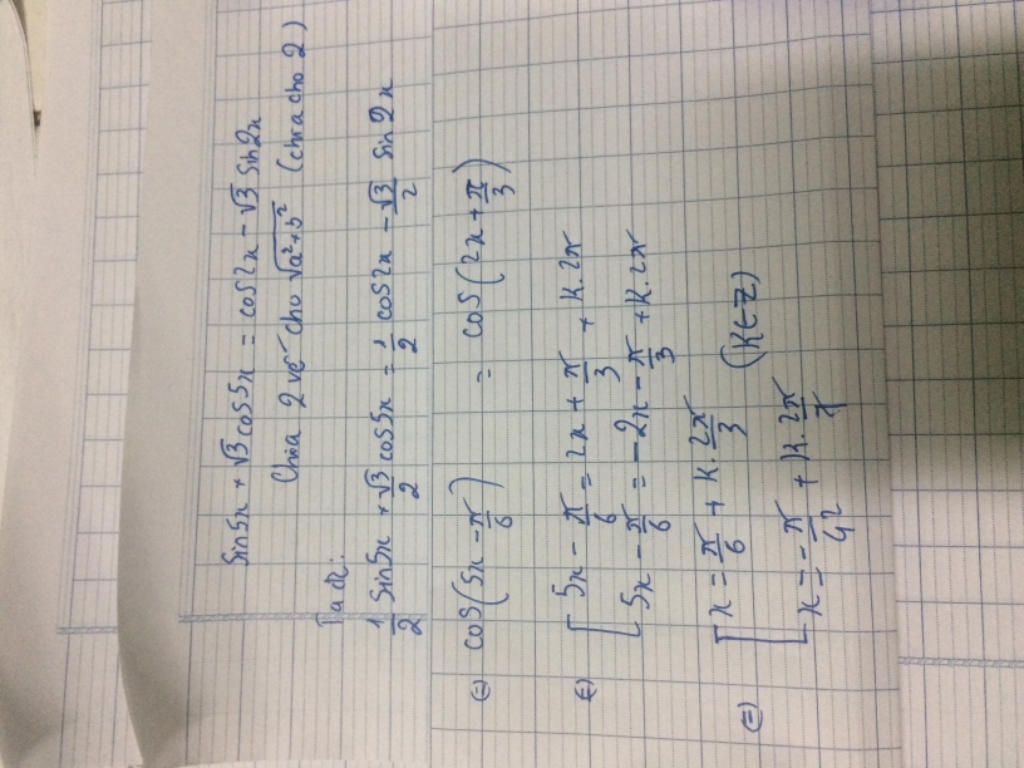 sin5x + √3 cos5x = cos2x - √3 sin2x
Chia 2 vế cho √a²+b² (chia cho 2)
Ta đc:
1/2 sin5x + √3/2 cos5x = 1/2 cos2x - √3/2 sin2x
(=) cos(5x - π/6) = cos(2x + π/3)
(=) [ 5x - π/6 = 2x + π/3 + k.2π
[ 5x - π/6 = -2x - π/3 + k.2π
(=) [ x = π/6 + k.2π/3
(k∈Z)
[ x = -π/42 + k.2π/7